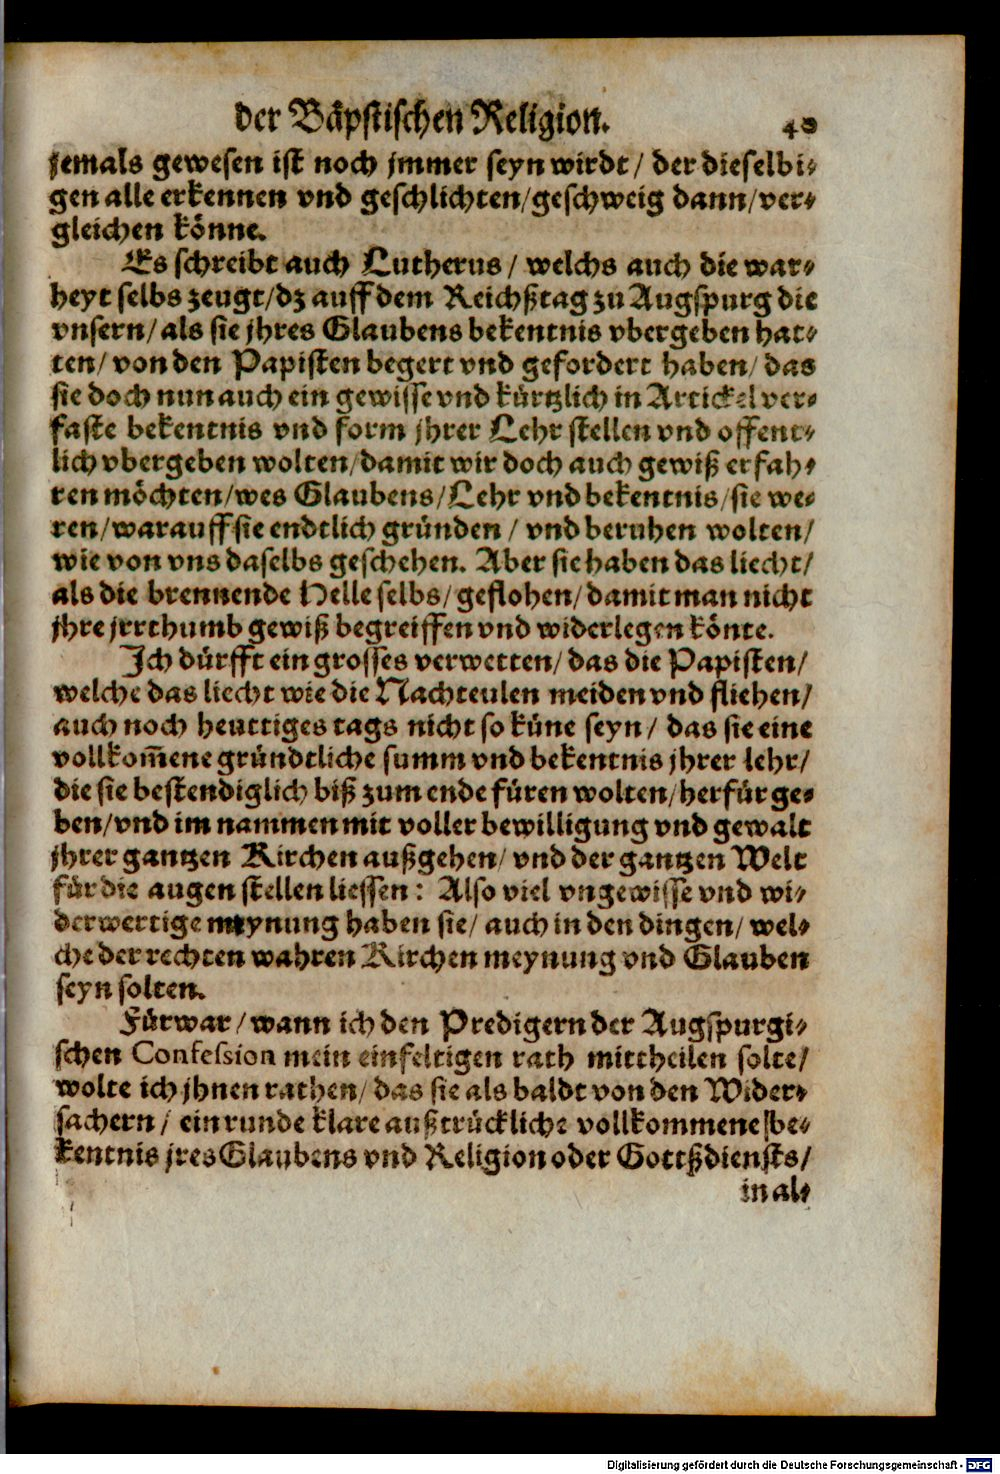 der Bäpstischen Religion. 40
jemals gewesen ist noch jmmer seyn wirdt / der dieselbi-
gen alle erkennen vnd geschlichten/geschweig dann/ver-
gleichen könne.
Es schreibt auch Lutherus / welchs auch die war-
heyt selbs zeugt/dz auff dem Reichßtag zu Augspurg die
vnsern/als sie jhres Glaubens bekentnis vbergeben hat-
ten/ von den Papisten begert vnd gefordert haben/ das
sie doch nun auch ein gewisse vnd kürtzlich in Artickel ver-
faste bekentnis vnd form jhrer Lehr stellen vnd offent-
lich vbergeben wolten/damit wir doch auch gewiß erfah-
ren möchten/wes Glaubens/Lehr vnd bekentnis/sie we-
ren/warauff sie endtlich gründen / vnd beruhen wolten/
wie von vns daselbs geschehen. Aber sie haben das liecht/
als die brennende Helle selbs/geflohen/damit man nicht
jhre jrrthumb gewiß begreiffen vnd widerlegen könte.
Ich dürfft ein grosses verwetten/das die Papisten/
welche das liecht wie die Nachteulen meiden vnd fliehen/
auch noch heuttiges tags nicht so küne seyn / das sie eine
vollkom̃ene gründtliche summ vnd bekentnis jhrer lehr/
die sie bestendiglich biß zum ende füren wolten/herfür ge-
ben/vnd im nammen mit voller bewilligung vnd gewalt
jhrer gantzen Kirchen außgehen/ vnd der gantzen Welt
für die augen stellen liessen: Also viel vngewisse vnd wi-
derwertige meynung haben sie/ auch in den dingen/ wel-
che der rechten wahren Kirchen meynung vnd Glauben
seyn solten.
Fürwar/wann ich den Predigern der Augspurgi-
schen Confession mein einfeltigen rath mittheilen solte/
wolte ich jhnen rathen/das sie als baldt von den Wider-
sachern / ein runde klare außtrückliche vollkommene be-
kentnis jres Glaubens vnd Religion oder Gottßdiensts/
in al-
Digitalisierung gefördert durch die Deutsche Forschungsgemeinschaft - DFG